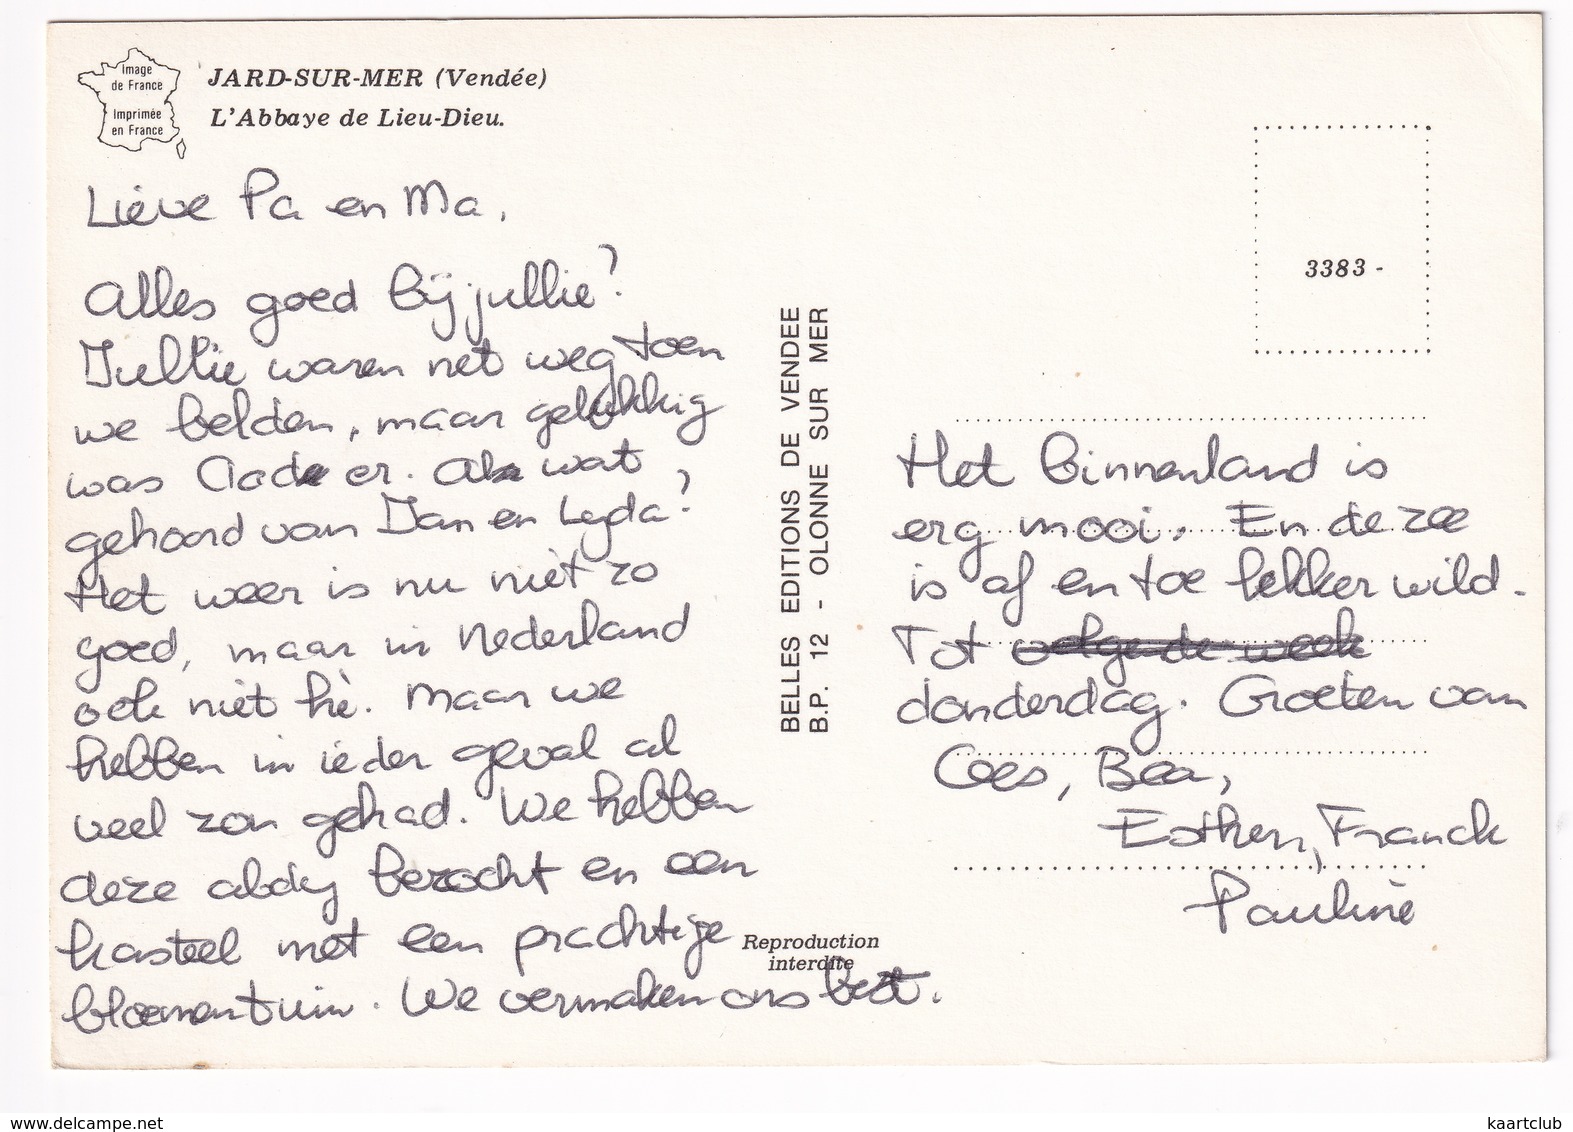 Image
de France
Imprimée
en France
JARD-SUR-MER (Vendée)
L'Abbaye de Lieu-Dieu.
Lieve Pa en Ma,
Alles goed bij jullie?
Jullie waren net weg toen
we belden, maar gelukkig
was Aad er. Al wat
gehoord van Jan en Lyda?
Het weer is nu niet zo
goed, maar in Nederland
ook niet hè. Maar we
hebben in ieder geval al
veel zon gehad. We hebben
deze abdij bezocht en een
kasteel met een prachtige
bloementuin. We vermaken ons best.
BELLES EDITIONS DE VENDEE
B.P. 12 - OLONNE SUR MER
Reproduction
interdite
3383 -
Het binnenland is
erg mooi. En de zee
is af en toe lekker wild.
Tot volgende week
donderdag. Groeten van
Cees, Bea,
Esther, Franck
Pauline
delcampe.net
kaartclub